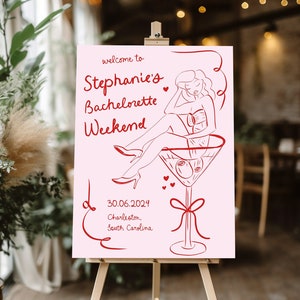 welcome to
Stephanie's
Bachelorette
Weekend
30.06.2024
Charleston,
South Carolina